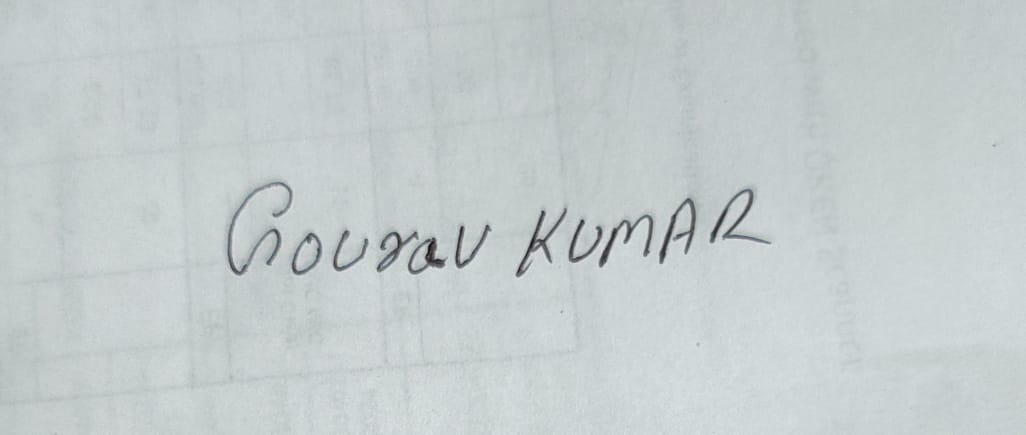 Gourav KUMAR